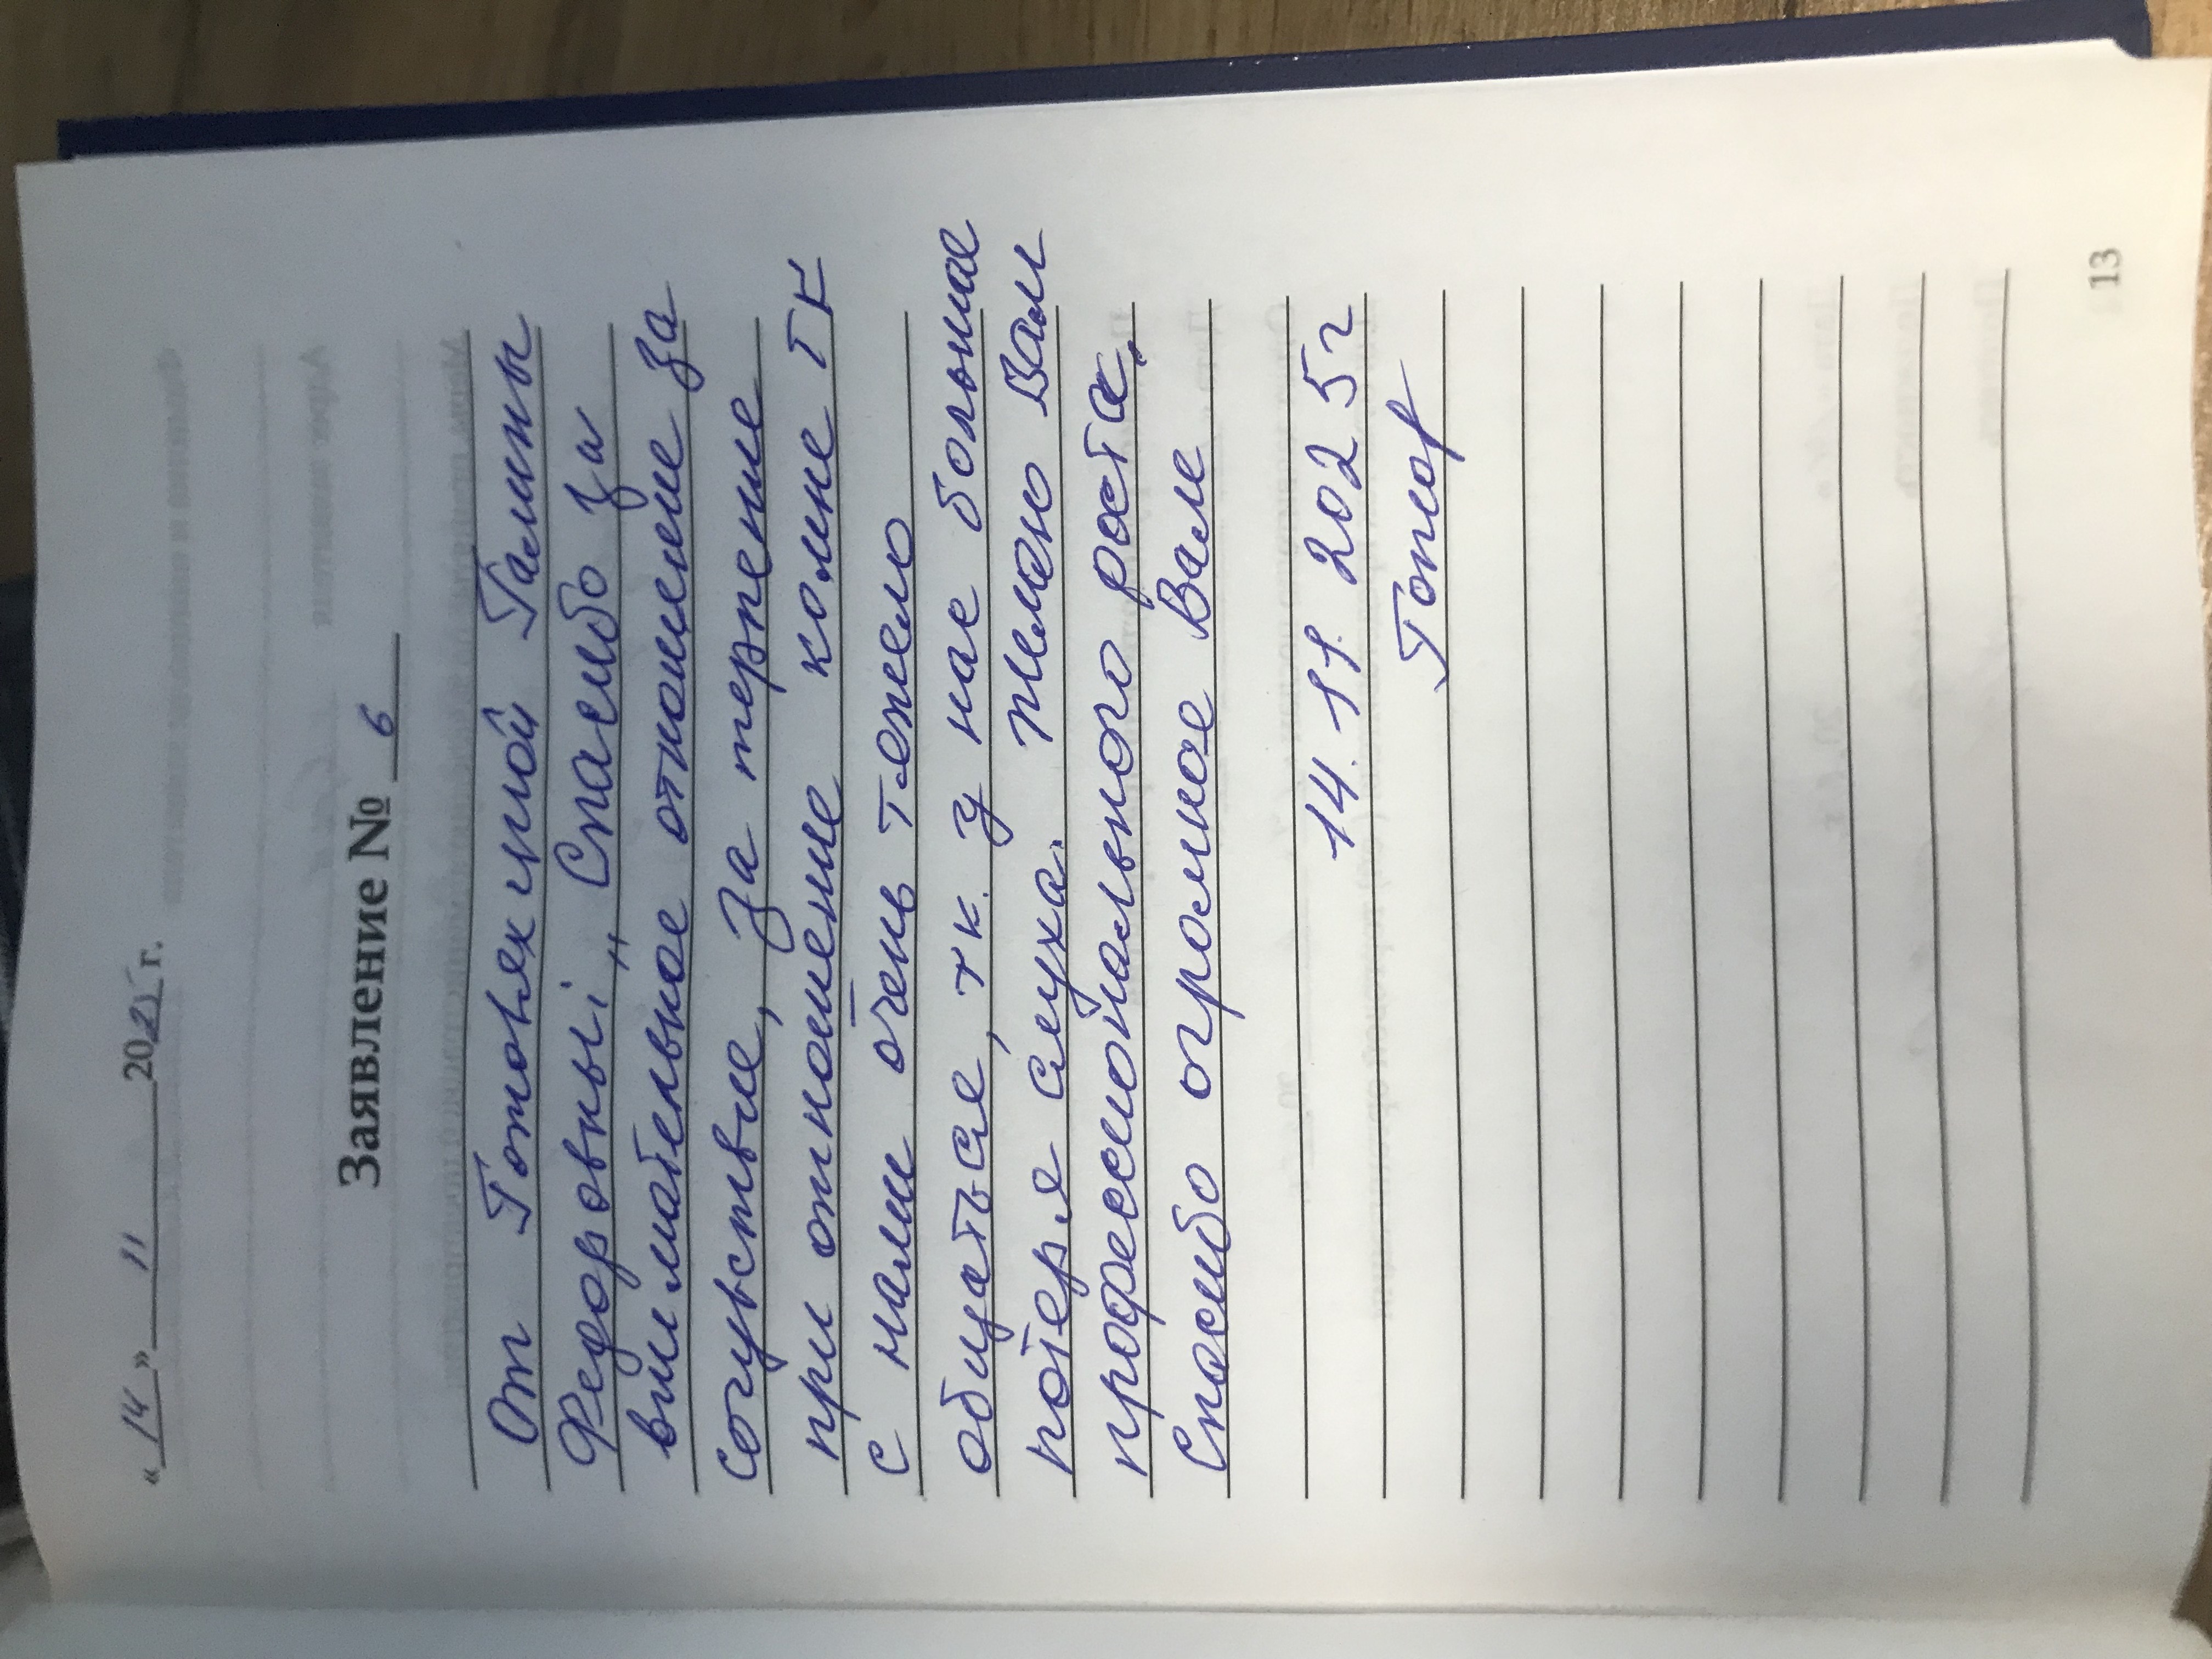 «14» 11 2025 г.
Заявление № 6
От Готовяхиной Галины
Федоровны; „ Спасибо за
внимательное отношение за
сочувствие, за терпение
при отношение комне тк
с нами очень тежело
общаться, тк. у нас большая
потеря слуха. Желаю Вам
профессионального роста,
Спасибо огромное Вам
14. 11. 2025 г
Готов
13